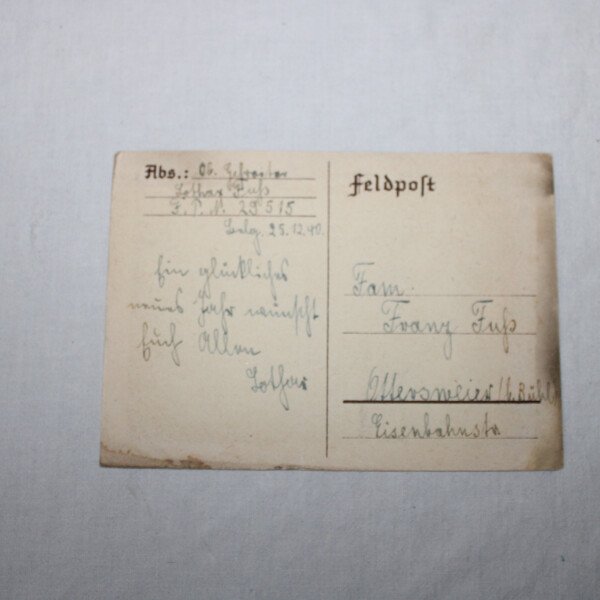 Abs.: Ob. Gefreiter
Lothar Fuß
F.P.N. 29515
Belg. 25.12.40.
Ein glückliches
neues Jahr wünscht
Euch Allen
Lothar
Feldpost
Fam.
Franz Fuß
Ottersweier (b. Bühl)
Eisenbahnstr.